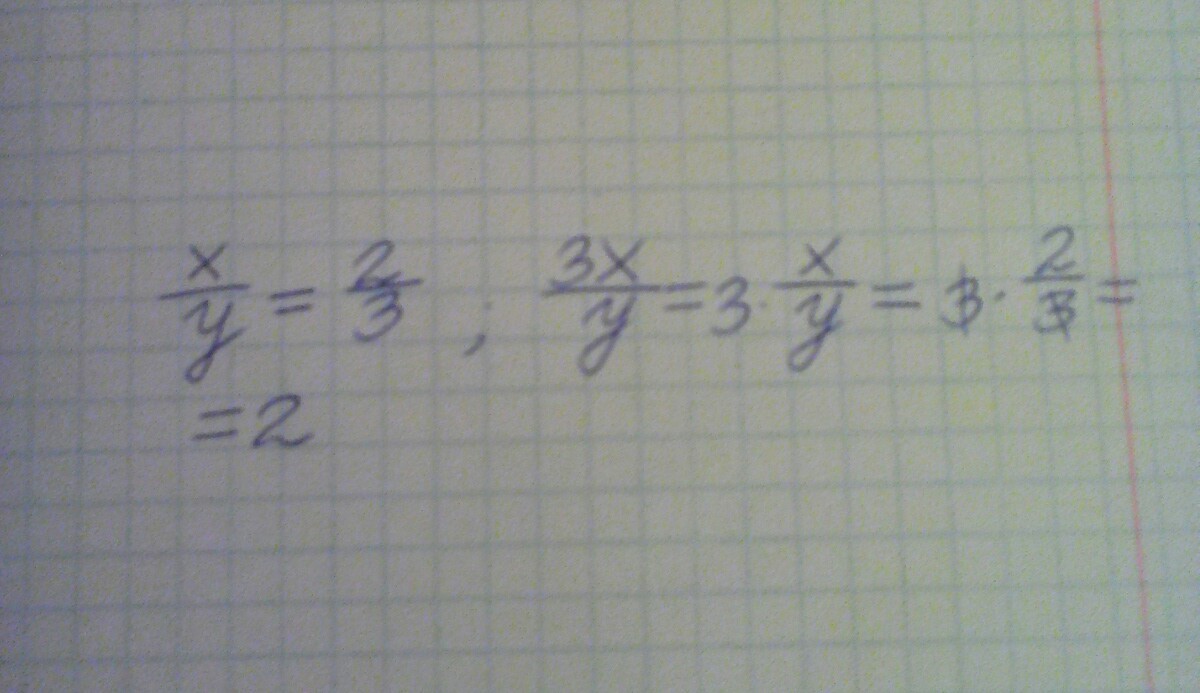 x/y = 2/3 ; 3x/y = 3 · x/y = 3 · 2/3 =
= 2